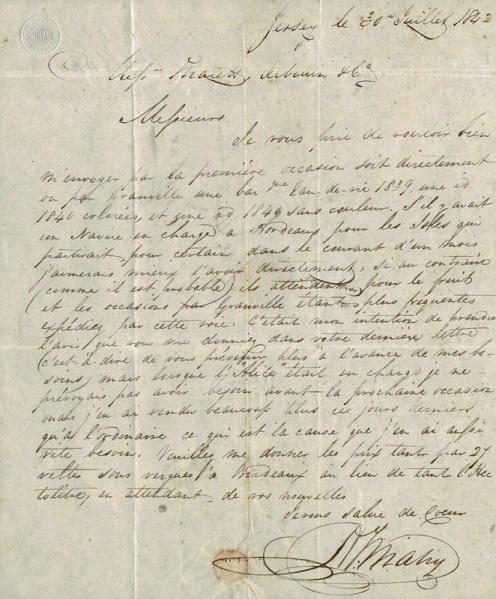 Jersey le 30 Juillet 1842
Messrs & Co
Messieurs
Je vous prie de vouloir bien
m'envoyer par la première occasion soit directement
ou par Granville une bar que Eau-de-vie 1839, une id
1840 colorées, et une id 1840 sans couleur. S'il y avait
un Navire en charge a Bordeaux pour les Isles qui
partirait pour certain dans le courant d'un mois
j'aimerais mieux l'avoir directement, si au contraire
(comme il est probable) ils attendent pour le fruit
et les occasions par Granville étant plus fréquentes
expédiez par cette voie. C'était mon intention de prendre
l'avis que vous me donniez dans votre dernière lettre
(c'est-à-dire de vous prévenir plus à l'avance de mes be-
soins) mais lorsque l'Alice était en charge je ne
prévoyais pas avoir besoin avant la prochaine occasion
mais j'en ai vendu beaucoup plus ces jours derniers
qu'à l'ordinaire ce qui est la cause que j'en ai aussi
vite besoin. Veuillez me donner les prix tant par 27
veltes sous vergues à Bordeaux au lieu de tant l'Hec
tolitre, en attendant de vos nouvelles
Je vous salue de Coeur